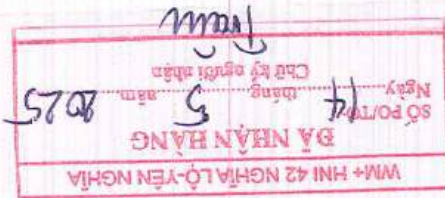 WM+ HNI 42 NGHĨA LỘ-YÊN NGHĨA
ĐÃ NHẬN HÀNG
SỐ PO/TO
Ngày 14 tháng 5 năm 2025
Chữ ký người nhận